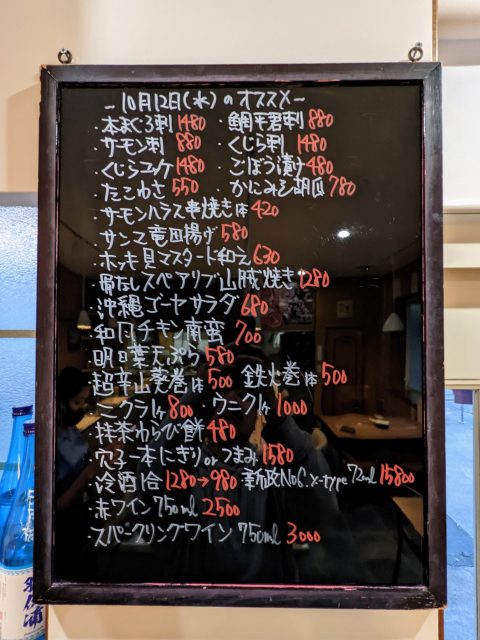 –10月12日(水)のオススメ–
・本まぐろ刺 1480 ・鯛平君刺 880
・サーモン刺 880 ・くじら刺 1480
・くじらユッケ 1480 ・ごぼう漬け 480
・たこわさ 550 ・かにみそ胡瓜 780
・サーモンハラス串焼き1本 420
・サンマ竜田揚げ 580
・ホッキ貝マスタード和え 630
・骨なしスペアリブ山賊焼き 1280
・沖縄ゴーヤサラダ 680
・和風チキン南蛮 700
・明日葉天ぷら 580
・超辛山葵巻1本 500 鉄火巻1本 500
・ミニクラ1ヶ 800 ・ウニク1ヶ 1000
・抹茶わらび餅 480
・穴子一本にぎりorつまみ 1580
・冷酒1合 1280→980 新政No6. X-type 72ml 15800
・赤ワイン 750ml 2500
・スパークリングワイン 750ml 3000